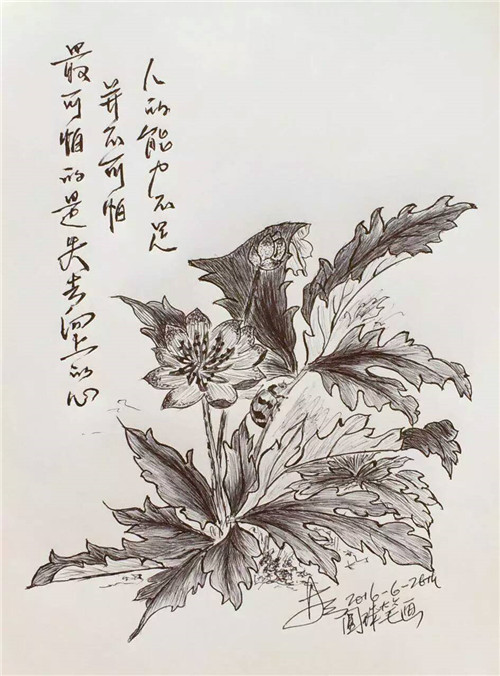 人的能力不足
并不可怕
最可怕的是失去向上的心
2016-6-28th
圆珠笔画